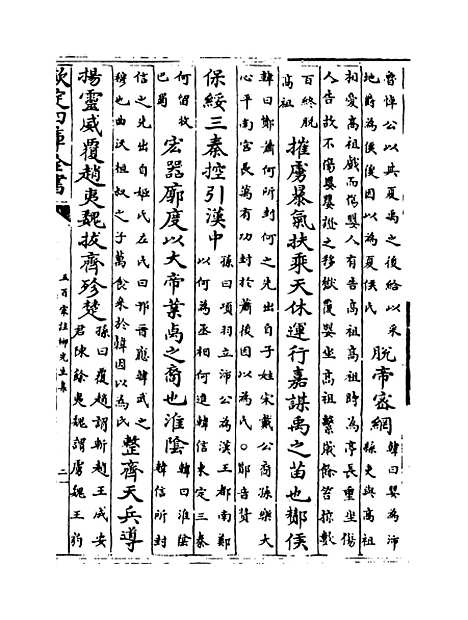 魯悼公以其夏禹之後給以采
地爵為侯後因以為夏侯氏
脱帝密網
韓曰嬰為沛
縣吏與高祖
相愛高祖戲而傷嬰人有告高祖高祖時為亭長重坐傷
人告故不傷嬰嬰證之移獄覆嬰坐高祖繫歲餘笞掠數
百終脱
高祖
摧虜暴氣扶乘天休運行嘉謀禹之苗也酇侯
韓曰鄼蕭何所封何之先出自子姓宋戴公裔孫樂大
心平南宫長萬有功封於蕭後因以為氏〇鄼音贊
保綏三秦控引漢中
孫曰項羽立沛公為漢王都南鄭
以何為丞相何進韓信東定三秦
何留收
巴蜀
宏器廓度以大帝業卨之裔也淮隂
韓曰淮隂
韓信所封
信之先出自姬氏左氏曰邗晉應韓武之
穆也曲沃桓叔之子萬食采於韓因以為氏
整齊天兵導
揚靈威覆趙夷魏拔齊殄楚
孫曰覆趙謂斬趙王成安
君陳餘夷魏謂虜魏王豹
欽定四庫全書
五百家注柳先生集